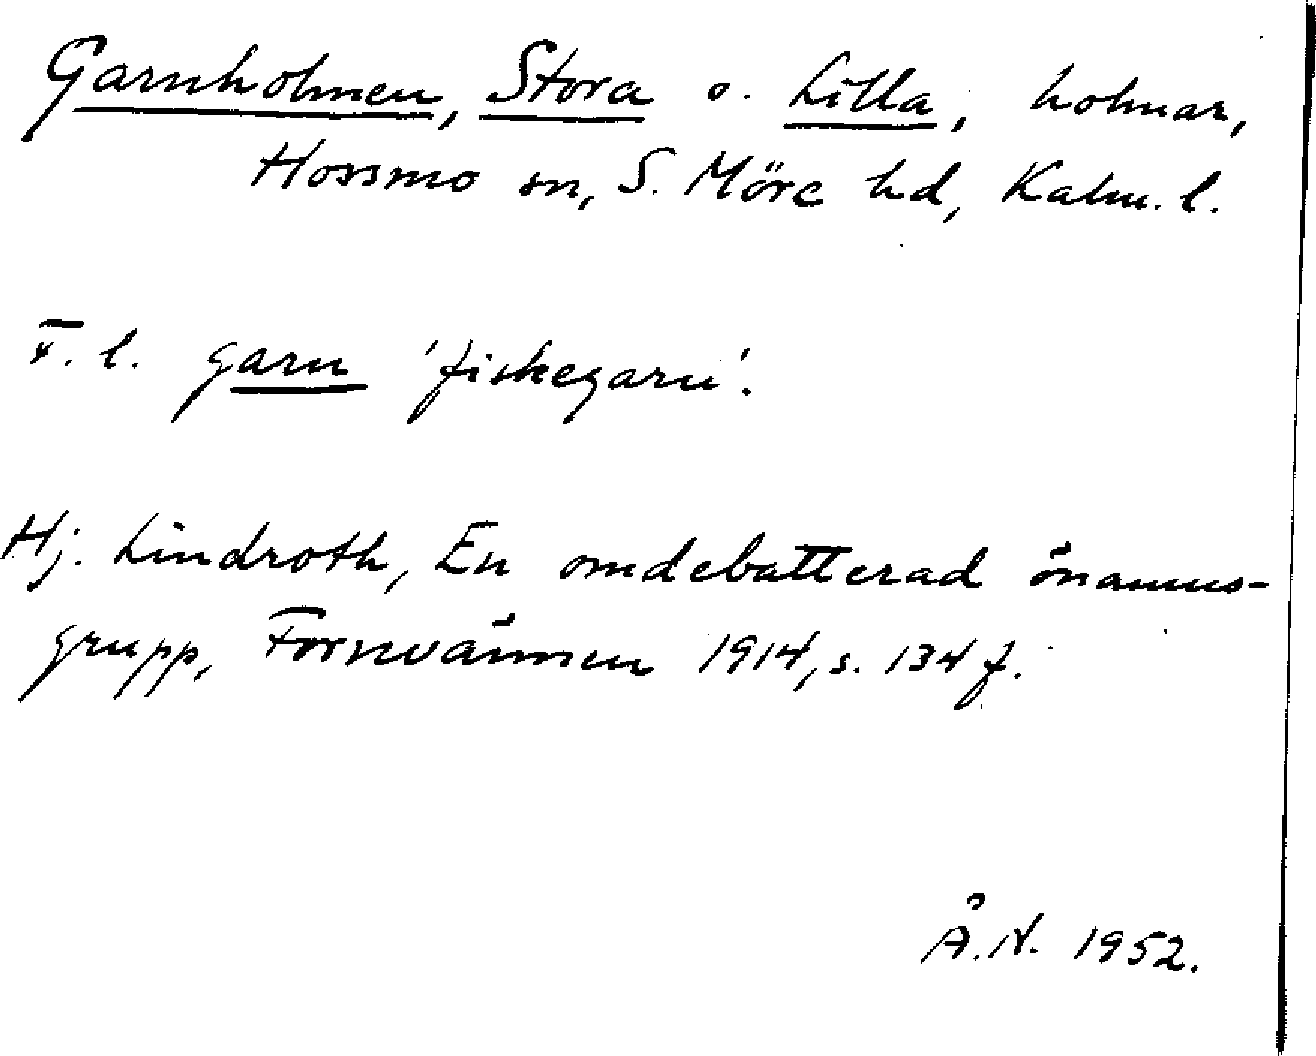 Garnholmen, Stora o. Lilla, holmar,
Hossmo sn, S. Möre hd, Kalm. l.
F. l. garn 'fiskegarn'.
Hj. Lindroth, En omdebatterad önamns-
grupp, Fornvännen 1914, s. 134 f.
Å.N. 1952.